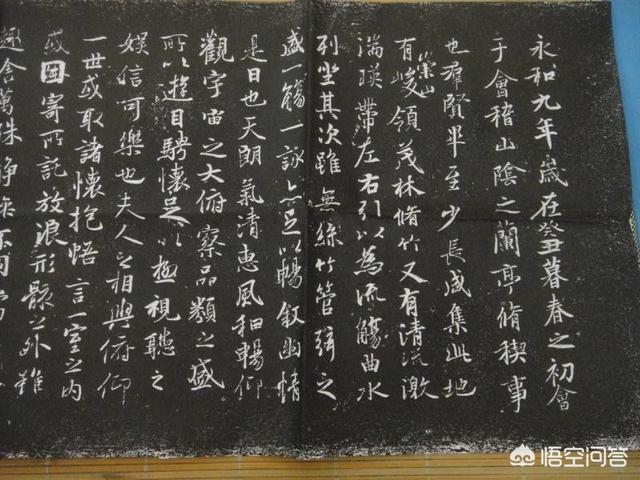 永和九年歲在癸丑暮春之初會
于會稽山陰之蘭亭脩稧事
也群賢畢至少長咸集此地
有崇山峻領茂林脩竹又有清流激
湍暎帶左右引以為流觴曲水
列坐其次雖無絲竹管弦之
盛一觴一詠亦足以暢叙幽情
是日也天朗氣清惠風和暢仰
觀宇宙之大俯察品類之盛
所以遊目騁懷足以極視聽之
娛信可樂也夫人之相與俯仰
一世或取諸懷抱悟言一室之內
或因寄所託放浪形骸之外雖
趣舍萬殊靜躁不同當
悟空问答